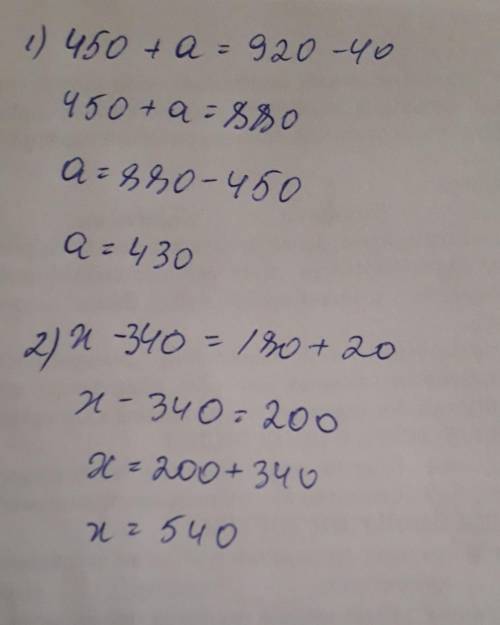 1) 450 + a = 920 - 40
450 + a = 880
a = 880 - 450
a = 430
2) x - 340 = 180 + 20
x - 340 = 200
x = 200 + 340
x = 540